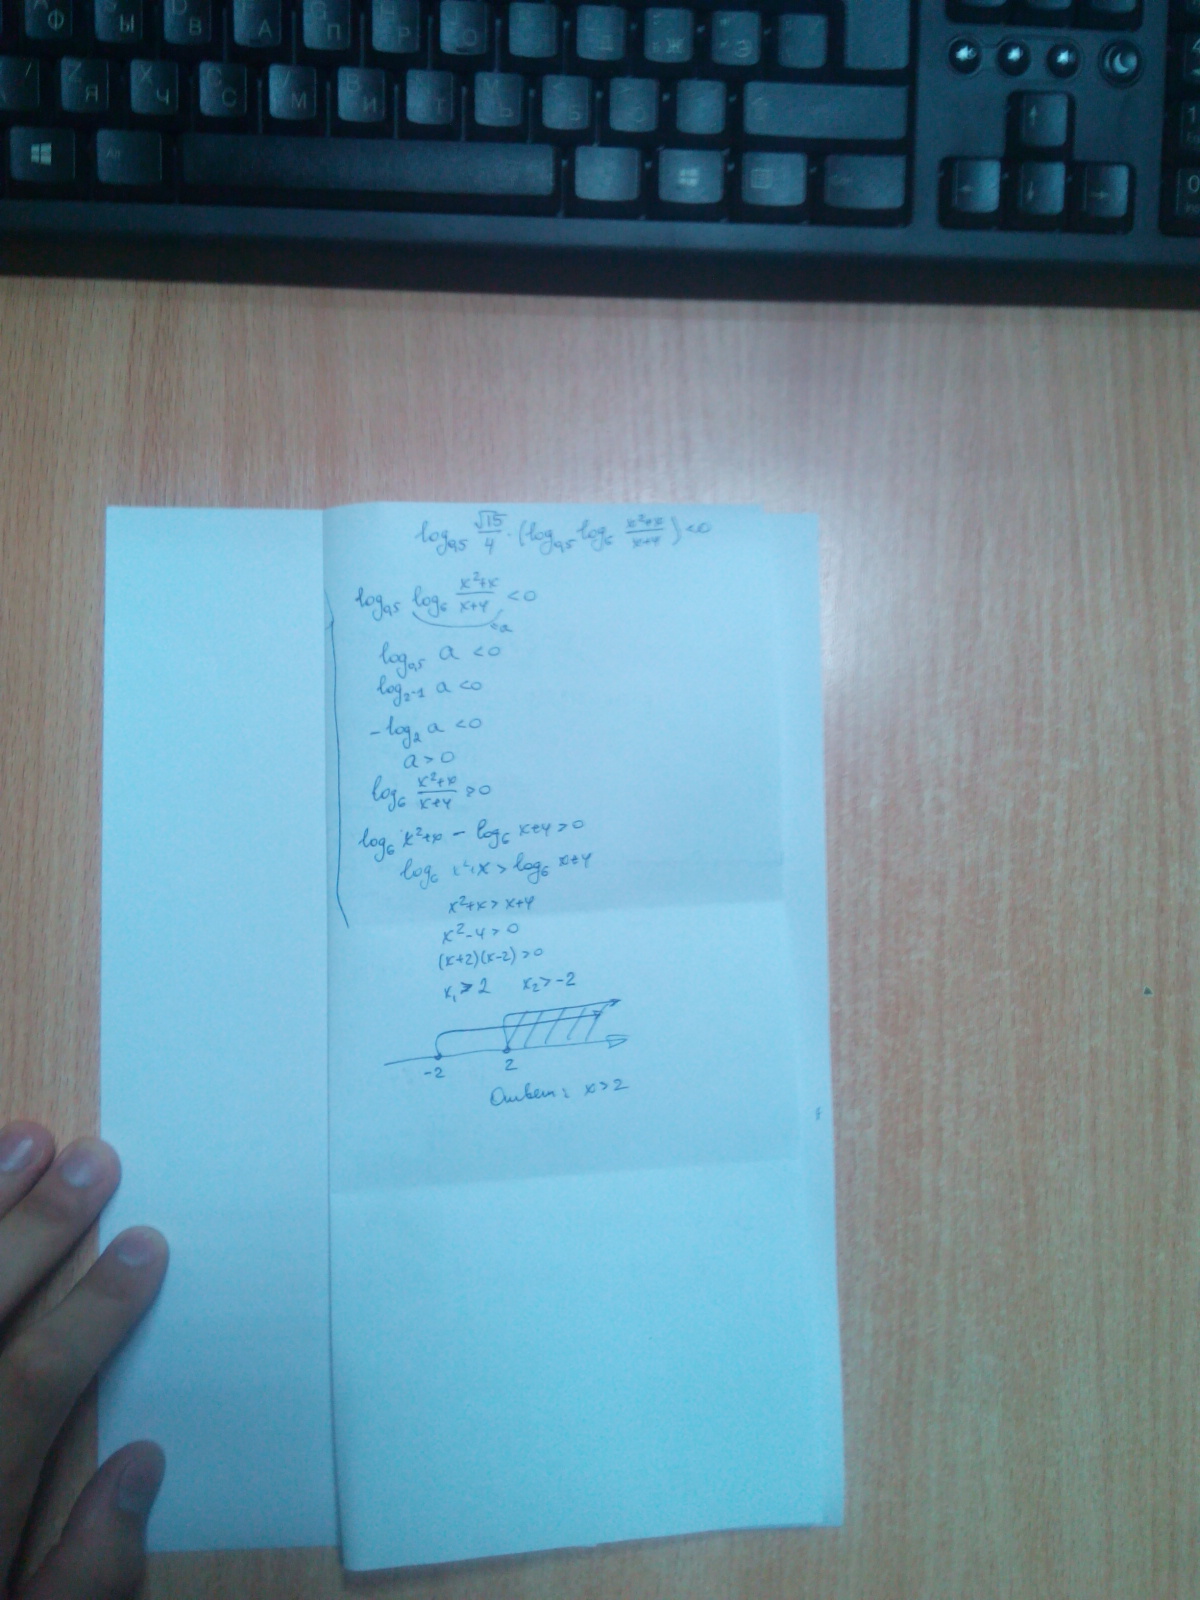 Ф Ы В А П Р О Л Д Ж Э
Z Я X Ч C С V М B И N Т М Ь Б Ю
Alt
log₀,₅ √15/4 · (log₀,₅ log₆ (x²+x)/(x+4)) <0
log₀,₅ log₆ (x²+x)/(x+4) <0
=a
log₀,₅ a <0
log₂₋₁ a <0
-log₂ a <0
a>0
log₆ (x²+x)/(x+4) >0
log₆ x²+x - log₆ x+4>0
log₆ x²+x > log₆ x+4
x²+x > x+4
x²-4>0
(x+2)(x-2)>0
x₁>2 x₂>-2
-2 2
Ответ: x>2